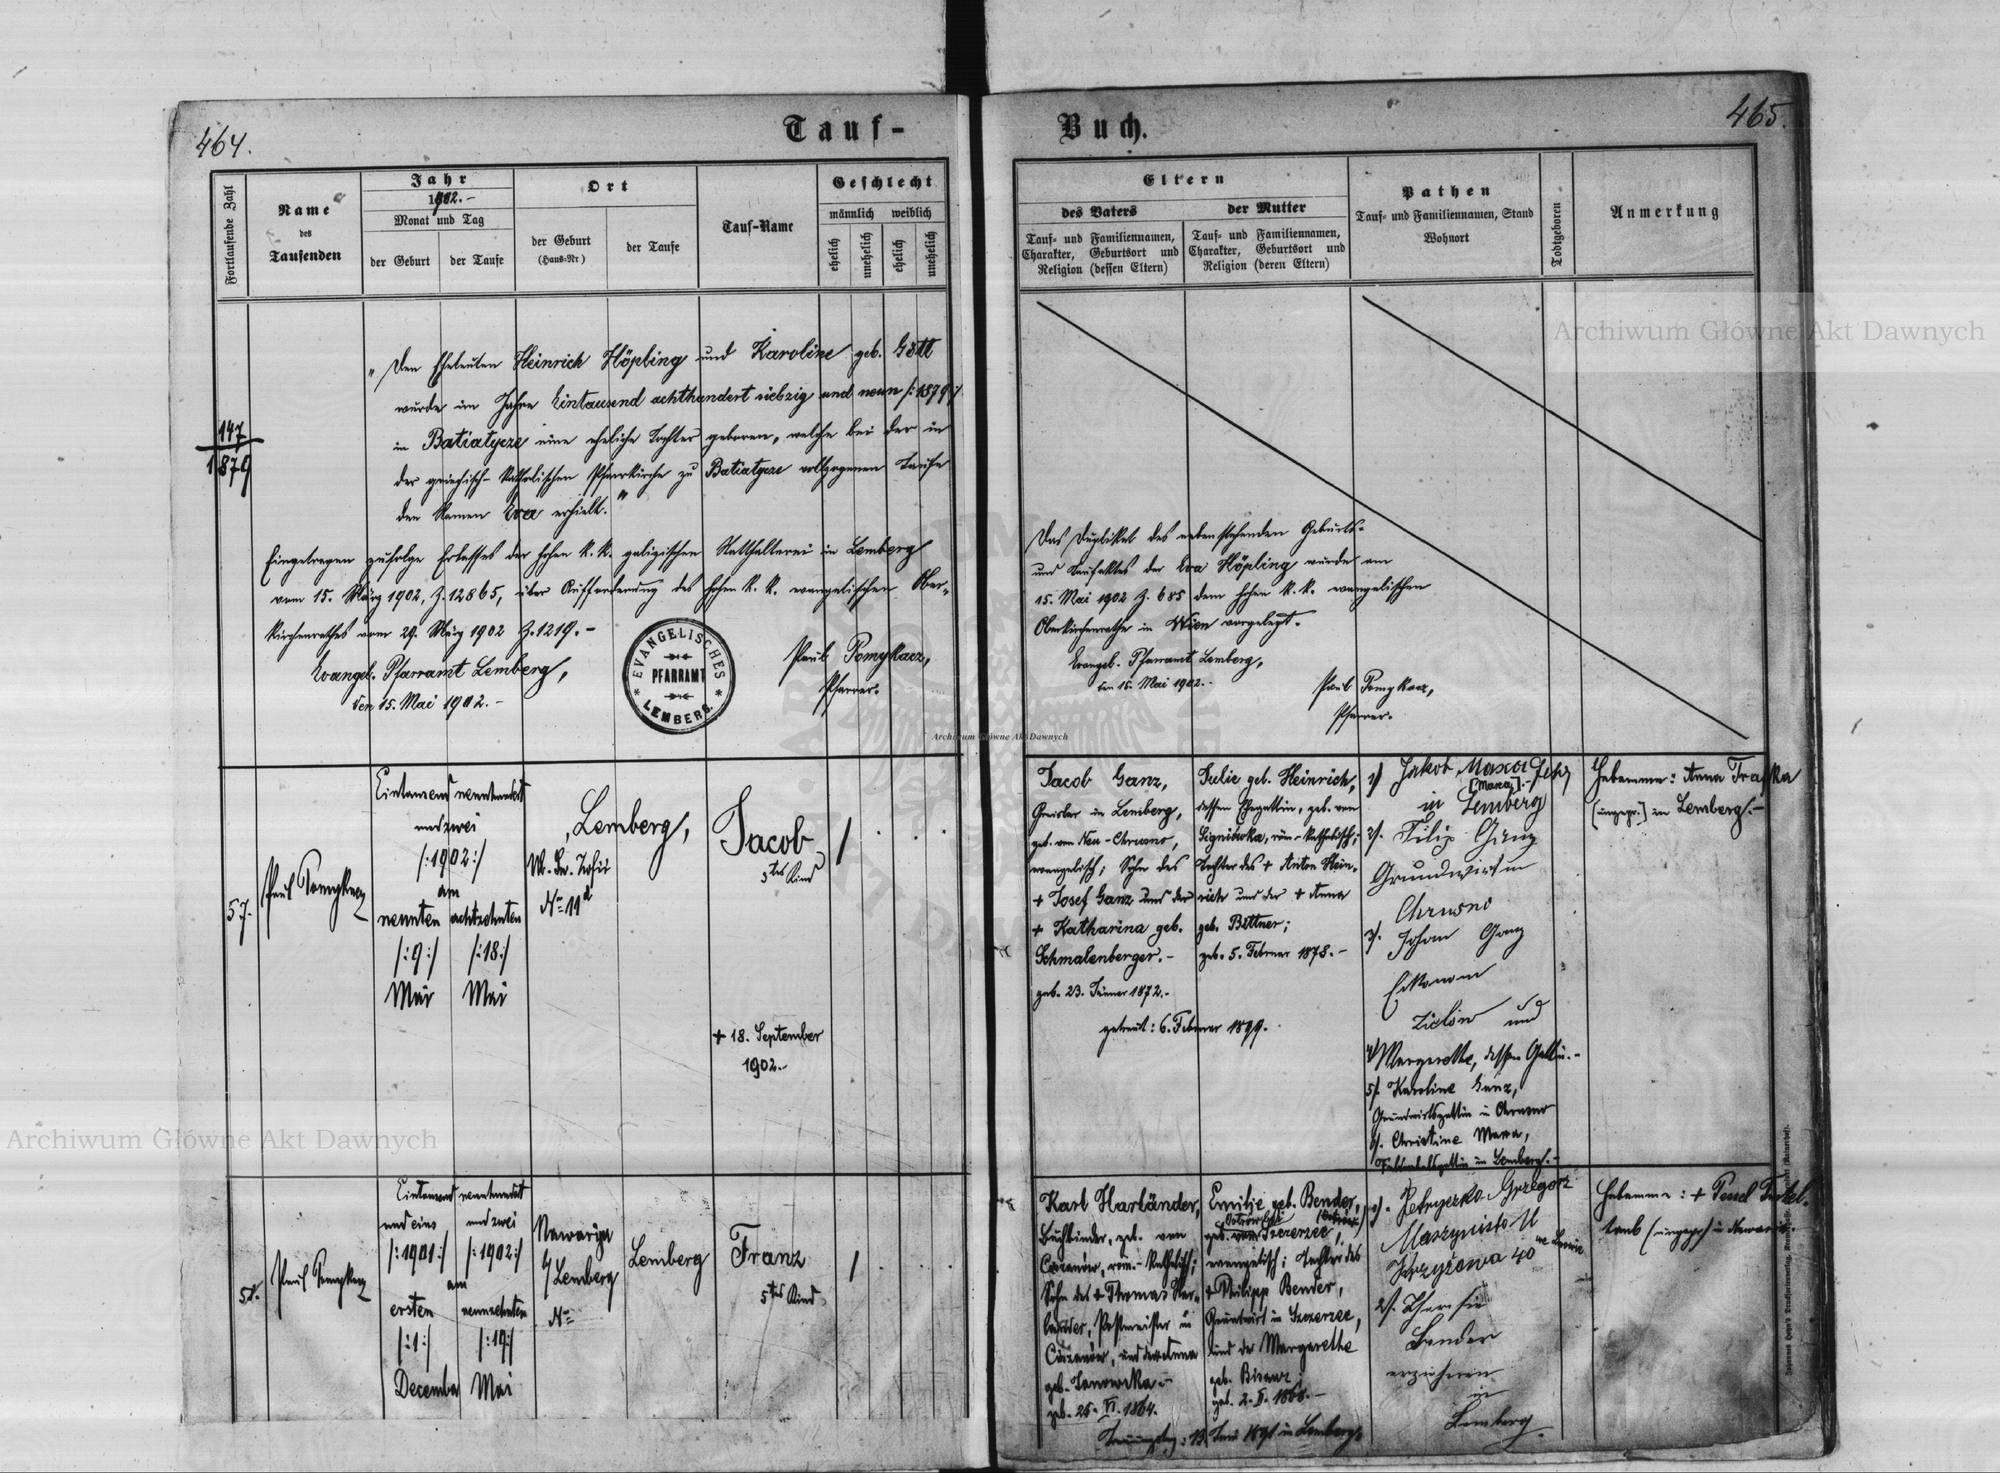 464.
Tauf-
Fortlaufende Zahl
Name
des
Taufenden
Jahr
1902.-
Monat und Tag
der Geburt
der Taufe
Ort
der Geburt
(Haus-Nr)
der Taufe
Tauf-Name
Geschlecht
männlich
weiblich
ehelich
unehelich
ehelich
unehelich
147
1879
„Den Eheleuten Heinrich Höpling und Karoline geb. Gött
wurde im Jahre Eintausend achthundert siebzig und neun /:1879:/
in Batiatycze eine eheliche Tochter geboren, welche bei der in
der griechisch-katholischen Pfarrkirche zu Batiatycze vollzogenen Taufe
den Namen Eva erhielt."
Eingetragen zufolge Erlasses der hohen k. k. galizischen Statthalterei in Lemberg
vom 15. März 1902, Z. 12865, über Aufforderung des hohen k. k. evangelischen Ober-
kirchenrathes vom 29. März 1902 Z. 1219.-
Evangel. Pfarramt Lemberg,
den 15. Mai 1902.-
EVANGELISCHES
PFARRAMT
LEMBERG.
Paul Pomykacz,
Pfarrer.
57.
Paul Pomykacz
Eintausend neunhundert
und zwei
/:1902:/
am
neunten
/:9:/
Mai
achtzehnten
/:18:/
Mai
Lemberg,
No 11d
Jacob
3tes Kind
/
+ 18. September
1902.-
58.
Paul Pomykacz
Eintausend neunhundert
und eins
/:1901:/
und zwei
/:1902:/
am
ersten
/:1:/
December
neunzehnten
/:19:/
Mai
Nawarya
b/ Lemberg
No
Lemberg
Franz
5tes Kind
/
465.
Buch.
Eltern
des Vaters
Tauf- und Familiennamen,
Charakter, Geburtsort und
Religion (dessen Eltern)
der Mutter
Tauf- und Familiennamen,
Charakter, Geburtsort und
Religion (deren Eltern)
Pathen
Tauf- und Familiennamen, Stand
Wohnort
Todtgeboren
Anmerkung
Das Duplikat des nebenstehenden Geburts-
und Taufaktes der Eva Höpling wurde am
15. Mai 1902 Z. 685 dem hohen k. k. evangelischen
Oberkirchenrathe in Wien vorgelegt.
Evangel. Pfarramt Lemberg,
den 15. Mai 1902.-
Paul Pomykacz,
Pfarrer.
Jacob Ganz,
in Lemberg,
geb. von Neu-Chrusno,
evangelisch; Sohn des
+ Josef Ganz und der
+ Katharina geb.
Schmalenberger.-
geb. 23. Jänner 1872.-
Julie geb. Heinrich,
dessen Ehegattin, geb. von
Sygniówka, röm.-katholisch;
Tochter des + Anton Hein-
rich und der + Anna
geb. Bittner;
geb. 5. Februar 1878.-
getraut: 6. Februar 1899.
1/ Jakob Maxa
in Lemberg
2/. Filip Ganz
Grundwirt in
Chrusno
3/. Johan Ganz
Ekonom
und
4/ Margarethe, dessen Gattin.-
5/. Karoline Ganz,
Grundwirtsgattin in Chrusno
6/. Christine Maxa,
in Lemberg.-
Hebamme: Anna
(ungepr.) in Lemberg.-
Karl Harländer,
Buchbinder, geb. von
röm.-katholisch;
Sohn des + Thomas Har-
länder, Postmeister in
und der Anna
geb. Janowska.-
geb. 25. VI. 1864.
Emilie geb. Bender,
geb. von Szczerzec,
evangelisch; Tochter des
+ Philipp Bender,
Grundwirt in Szczerzec,
und der Margarethe
geb. 2. II. 1868.-
Trauungstag: 13. Juni 1891 in Lemberg.
1/. Petryczko Grzegorz
Maszynista
Krzyżowa 40
2/. Theresie
Bender
in
Lemberg.
Hebamme: +
(ungepr) in Nawaria.
Archiwum Główne Akt Dawnych
Archiwum Główne Akt Dawnych
Archiwum Główne Akt Dawnych